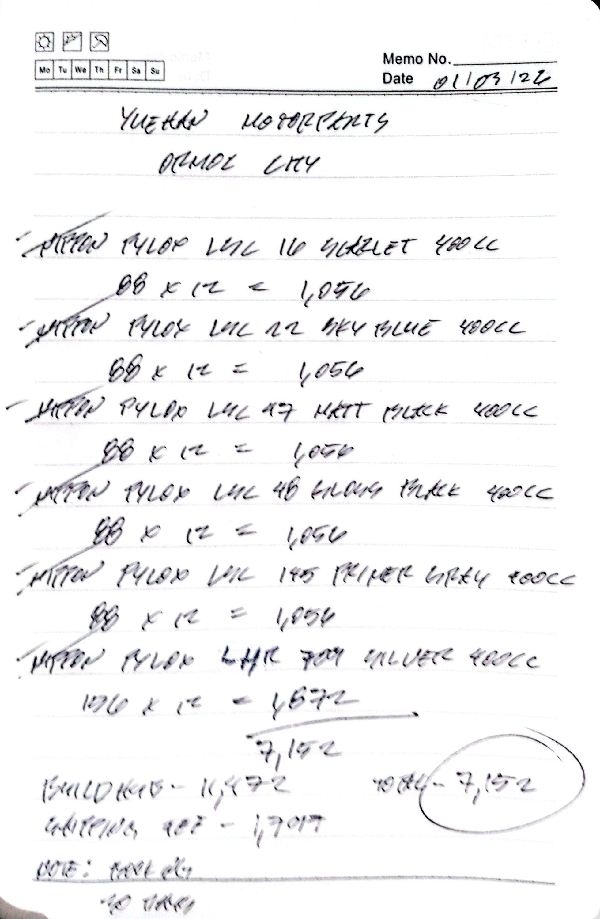 Mo Tu We Th Fr Sa Su
Memo No.
Date 01/03/26
YUEHAN MOTORPARTS
ORMOC CITY
NIPPON PYLOX LAC 16 SCARLET 400CC
88 x 12 = 1,056
NIPPON PYLOX LAC 22 SKY BLUE 400CC
88 x 12 = 1,056
NIPPON PYLOX LAC 47 MATT BLACK 400CC
88 x 12 = 1,056
NIPPON PYLOX LAC 48 GLOSS BLACK 400CC
88 x 12 = 1,056
NIPPON PYLOX LAC 145 PRIMER GRAY 400CC
88 x 12 = 1,056
NIPPON PYLOX LHR 704 SILVER 400CC
156 x 12 = 1,872
7,152
TOTAL - 7,152
NOTE: